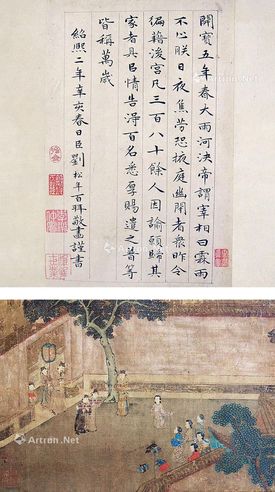 開寶五年春大雨河決帝謂宰相曰霖雨
不止朕日夜焦勞恐掖庭幽閉者衆昨令
編籍後宮凡三百八十餘人因諭願歸其
家者具以情告得百名悉厚賜遣之普等
皆稱萬歲
紹熙二年辛亥春日臣劉松年百拜敬畫謹書
Artron.Net
Artron.Net